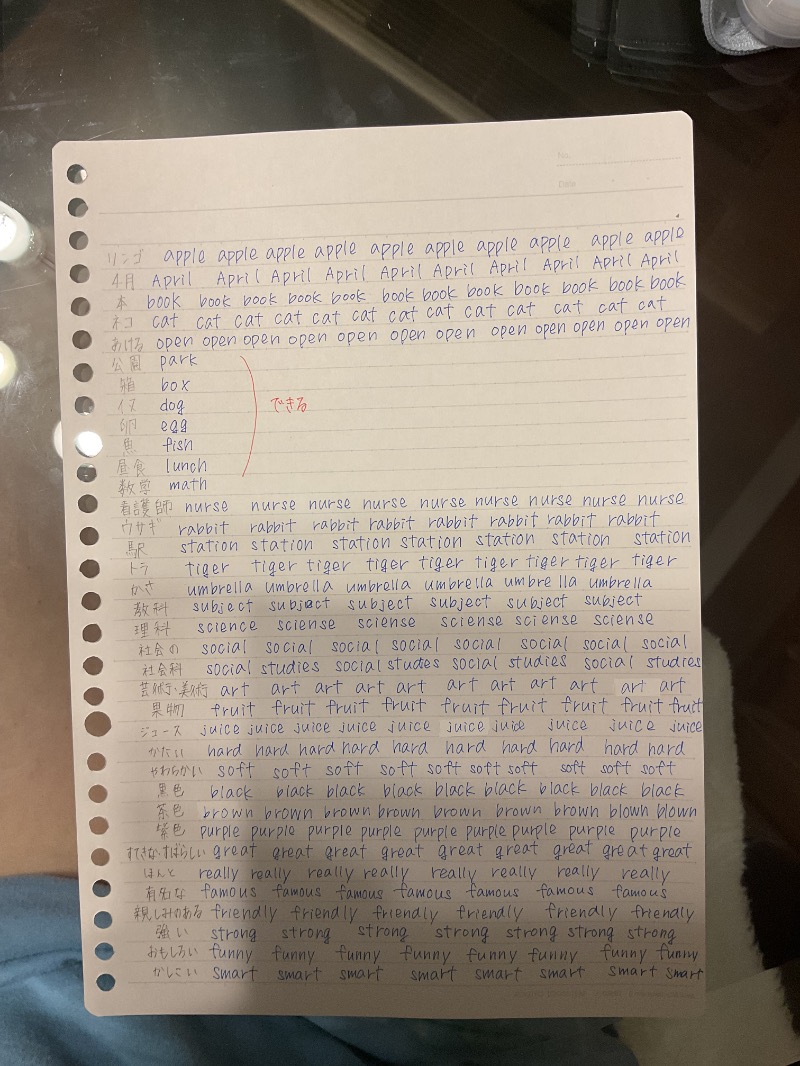 No.
Date
リンゴ apple apple apple apple apple apple apple apple apple apple
4月 April April April April April April April April April April
本 book book book book book book book book book book book
ネコ cat cat cat cat cat cat cat cat cat cat cat cat
あける open open open open open open open open open open open
公園 park
箱 box
イヌ dog
卵 egg
魚 fish
昼食 lunch
数学 math
できる
看護師 nurse nurse nurse nurse nurse nurse nurse nurse nurse
ウサギ rabbit rabbit rabbit rabbit rabbit rabbit rabbit rabbit
駅 station station station station station station station
トラ tiger tiger tiger tiger tiger tiger tiger tiger tiger
かさ umbrella umbrella umbrella umbrella umbrella umbrella
教科 subject subject subject subject subject subject
理科 science sciense sciense sciense sciense sciense
社会の social social social social social social social social
社会科 social studies social studes social studies social studies
芸術・美術 art art art art art art art art art art art
果物 fruit fruit fruit fruit fruit fruit fruit fruit fruit
ジュース juice juice juice juice juice juice juice juice juice juice
かたい hard hard hard hard hard hard hard hard hard hard
やわらかい soft soft soft soft soft soft soft soft soft soft
黒色 black black black black black black black black black
茶色 brown brown brown brown brown brown brown blown blown
紫色 purple purple purple purple purple purple purple purple purple
すてきな・すばらしい great great great great great great great great great
ほんと really really really really really really really really
有名な famous famous famous famous famous famous famous
親しみのある friendly friendly friendly friendly friendly friendly
強い strong strong strong strong strong strong strong
おもしろい funny funny funny funny funny funny funny funny
かしこい smart smart smart smart smart smart smart smart